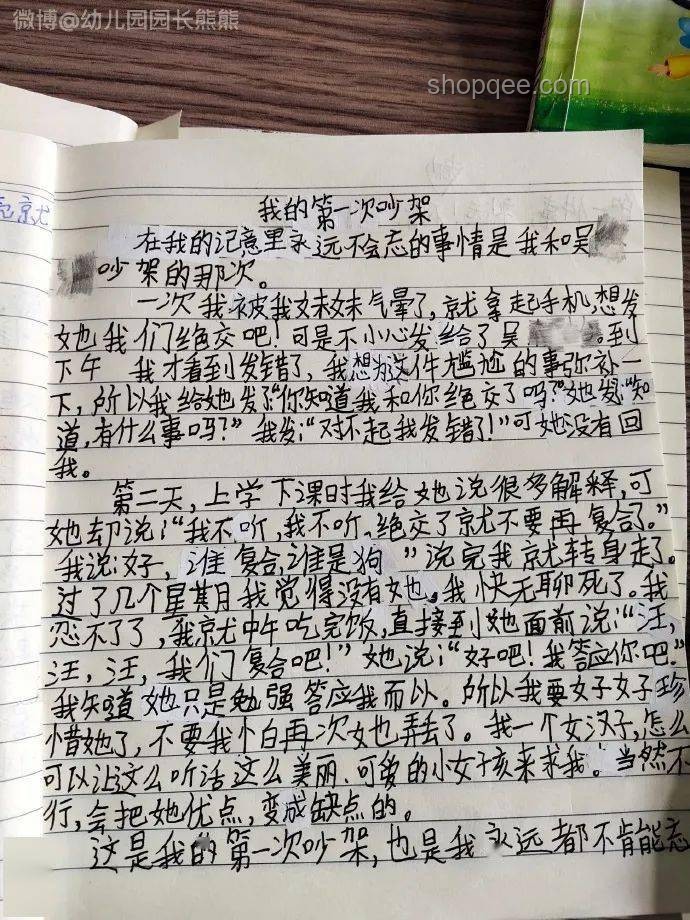 微博@幼儿园园长熊熊
shopqee.com
我的第一次吵架
在我的记意里永远不会忘的事情是我和吴
吵架的那次。
一次我被我妹妹气晕了,就拿起手机,想发
她我们绝交吧!可是不小心发给了吴 。到
下午 我才看到发错了,我想为这件尴尬的事弥补一
下,所以我给她发了“你知道我和你绝交了吗?”她发:“知
道,有什么事吗?”我发:“对不起我发错了!”可她没有回
我。
第二天,上学下课时我给她说很多解释,可
她却说:“我不听,我不听、绝交了就不要再复合了。”
我说:好,谁复合,谁是狗”说完我就转身走了。
过了几个星期我觉得没有她。我快无聊死了。我
忍不了了,我就中午吃完饭,直接到她面前说:“汪,
汪,汪,我们复合吧!”她说:“好吧!我答应你吧。”
我知道她只是勉强答应我而以。所以我要好好珍
惜她了,不要我怕再次她弄丢了。我一个女汉子,怎么
可以让这么听话这么美丽、可爱的小女孩来求我!当然不
行,会把她优点,变成缺点的。
这是我的第一次吵架,也是我永远都不肯能忘